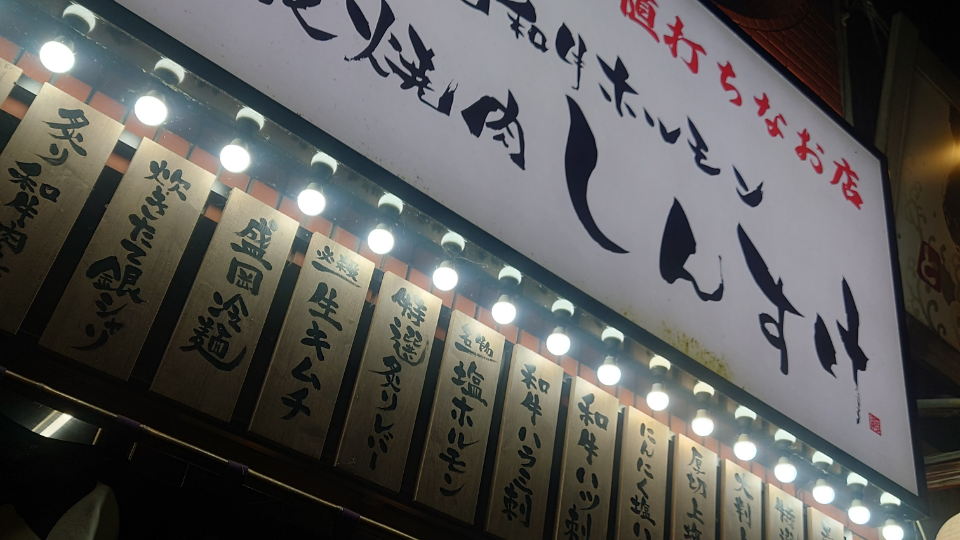 直打ちなお店
和牛ホルモン
焼肉
しんすけ
炙り和牛肉
炊きたて銀シャリ
盛岡冷麺
生キムチ
特選炙りレバー
名物塩ホルモン
和牛ハラミ刺
和牛ハツ刺
にんにく塩
厚切上
大判
特